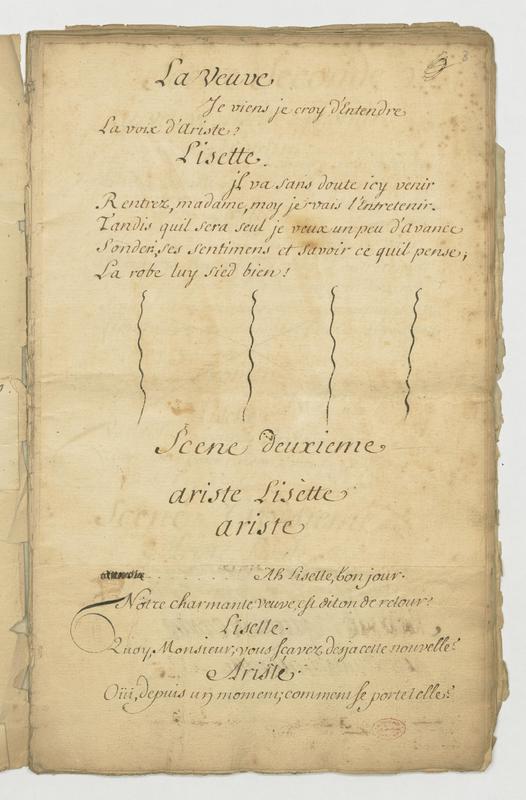 La Veuve
Je viens je croy d'Entendre
La voix d'Ariste?
Lisette.
jl va sans doute icy venir
Rentrez, madame, moy je vais l'Entretenir.
Tandis quil sera seul je veux un peu d'avance
Sonder, ses sentimens et savoir ce quil pense,
La robe luy sied bien!
Scene deuxieme
ariste Lisètte
ariste
Ah Lisette, bon jour.
Nôtre charmante veuve, est diton de retour?
Lisette.
Quoy, Monsieur, vous sçavez desja cette nouvelle?
Ariste.
Oüi, depuis un moment; comment se porte telle?